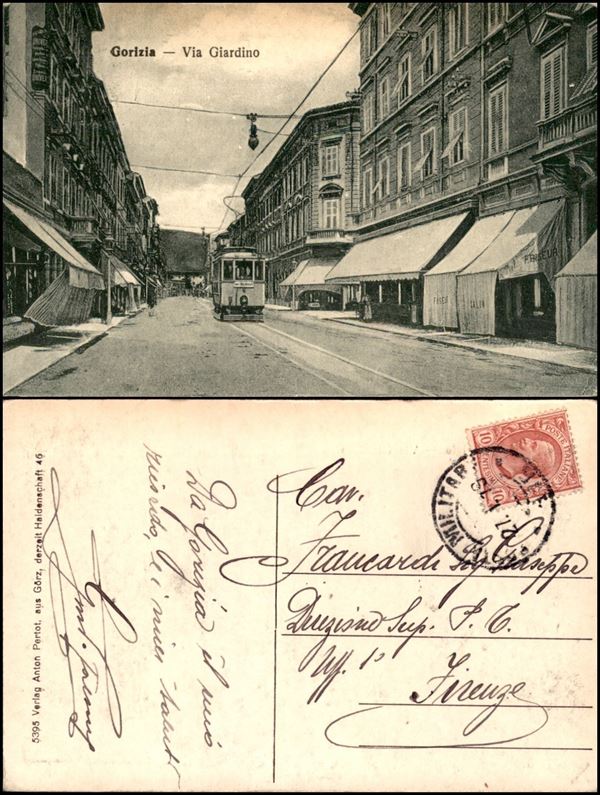 Gorizia — Via Giardino
FASEUR
FASEUR
5395 Verlag Anton Pertot, aus Görz, derzeit Haidenschaft 46
Da Gorizia il mio
ricordo, e i miei saluti
Cav.
Francardi Sig. Giuseppe
Direzione Sup. S. T.
Uff. 1º
Firenze
MILITAR
10
POSTE ITALIANE
10